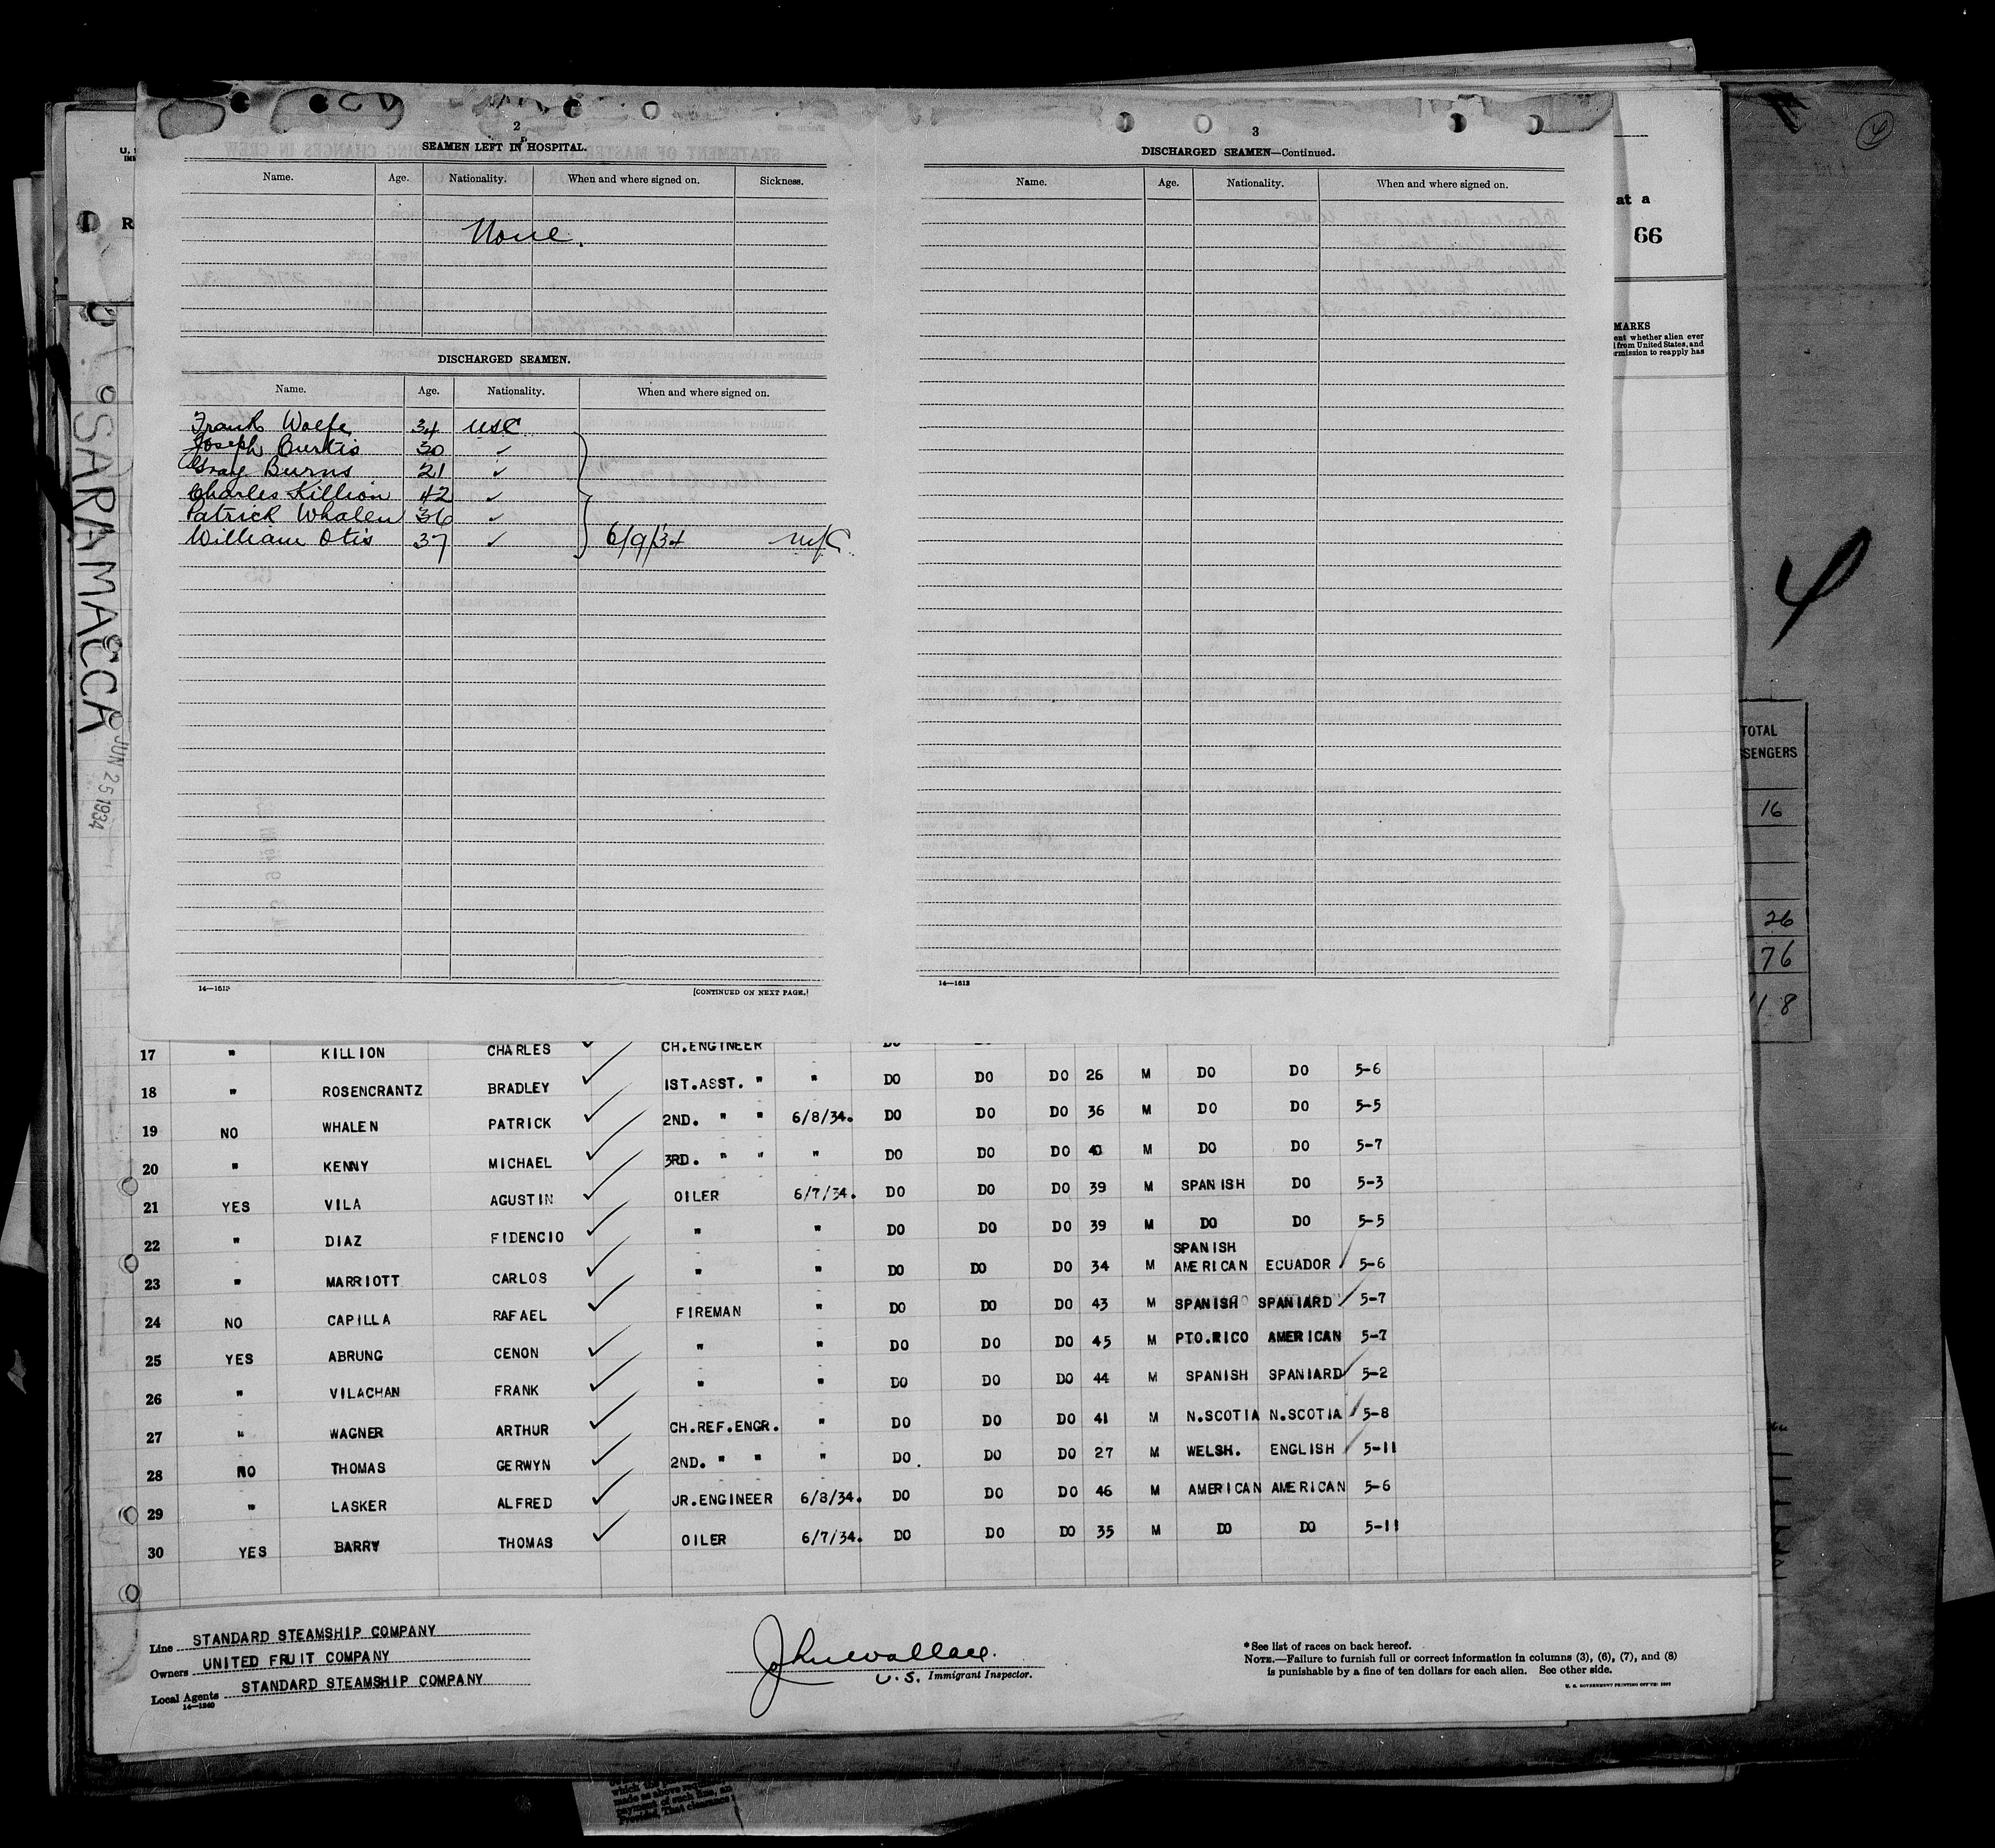 2
SEAMEN LEFT IN HOSPITAL.
Name. Age. Nationality. When and where signed on. Sickness.
None.
DISCHARGED SEAMEN.
Name. Age. Nationality. When and where signed on.
Frank Wolfe 34 USC
Joseph Burtis 30 ✓
Gray Burns 21 ✓
Charles Killion 42 ✓
Patrick Whalen 36 ✓
William Otis 37 ✓ 6/9/34 NYC
[CONTINUED ON NEXT PAGE.]
3
DISCHARGED SEAMEN—Continued.
Name. Age. Nationality. When and where signed on.
14—1613
SARAMACCA
JUN 25 1934
at a
66
MARKS
ent whether alien ever
from United States, and
rmission to reapply has
4
TOTAL
SENGERS
16
26
76
17 " KILLION CHARLES ✓ CH.ENGINEER
18 " ROSENCRANTZ BRADLEY ✓ 1ST.ASST. " " DO DO DO 26 M DO DO 5-6
19 NO WHALEN PATRICK ✓ 2ND. " " 6/8/34. DO DO DO 36 M DO DO 5-5
20 " KENNY MICHAEL ✓ 3RD. " " " DO DO DO M DO DO 5-7
21 YES VILA AGUSTIN ✓ OILER 6/7/34. DO DO DO 39 M SPANISH DO 5-3
22 " DIAZ FIDENCIO ✓ " " DO DO DO 39 M DO DO 5-5
23 " MARRIOTT CARLOS ✓ " " DO DO DO 34 M SPANISH AMERICAN ECUADOR 5-6
24 NO CAPILLA RAFAEL ✓ FIREMAN " DO DO DO 43 M SPANISH SPANIARD 5-7
25 YES ABRUNG CENON ✓ " " DO DO DO 45 M PTO.RICO AMERICAN 5-7
26 " VILACHAN FRANK ✓ " " DO DO DO 44 M SPANISH SPANIARD 5-2
27 " WAGNER ARTHUR ✓ CH.REF.ENGR. " DO DO DO 41 M N.SCOTIA N.SCOTIA 5-8
28 NO THOMAS GERWYN ✓ 2ND. " " " DO. DO DO 27 M WELSH. ENGLISH 5-11
29 " LASKER ALFRED ✓ JR.ENGINEER 6/8/34. DO DO DO 46 M AMERICAN AMERICAN 5-6
30 YES BARRY THOMAS ✓ OILER 6/7/34. DO DO DO 35 M DO DO 5-11
Line STANDARD STEAMSHIP COMPANY
Owners UNITED FRUIT COMPANY
Local Agents STANDARD STEAMSHIP COMPANY
14—1240
John Wallace.
U.S. Immigrant Inspector.
*See list of races on back hereof.
NOTE.—Failure to furnish full or correct information in columns (3), (6), (7), and (8)
is punishable by a fine of ten dollars for each alien. See other side.